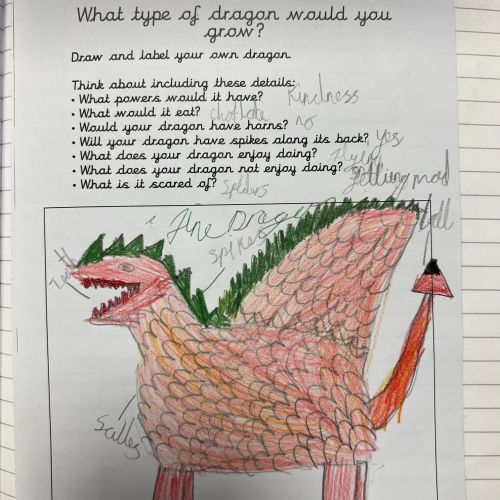 What type of dragon would you
grow?
Draw and label your own dragon.
Think about including these details:
• What powers would it have? Kindness
• What would it eat? choclate
• Would your dragon have horns? no
• Will your dragon have spikes along its back? Yes
• What does your dragon enjoy doing?
• What does your dragon not enjoy doing? getting mad
• What is it scared of? Spiders
Fire Dragon
spikes
Teeth
Scalles